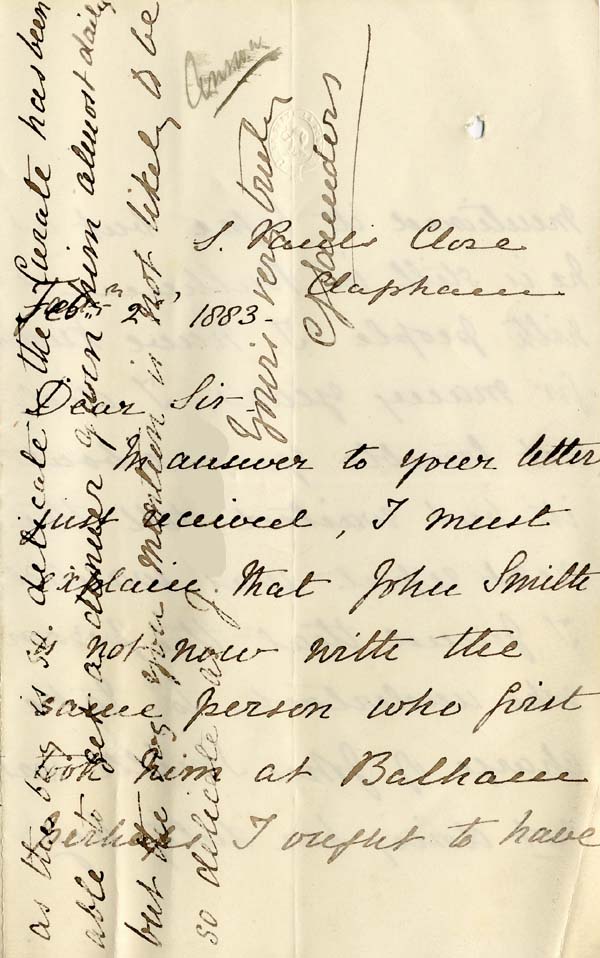 S. Paul's Close
Clapham
Feb. 2nd, 1883 -
Dear Sir -
In answer to your letter
just received, I must
explain that John Smith
is not now with the
same person who first
took him at Balham
perhaps I ought to have
as this boy is so delicate the Curate has been
able to get a dinner given him almost daily
but the boy you mention is not likely to be
so delicate as
Yours very truly
Saunders